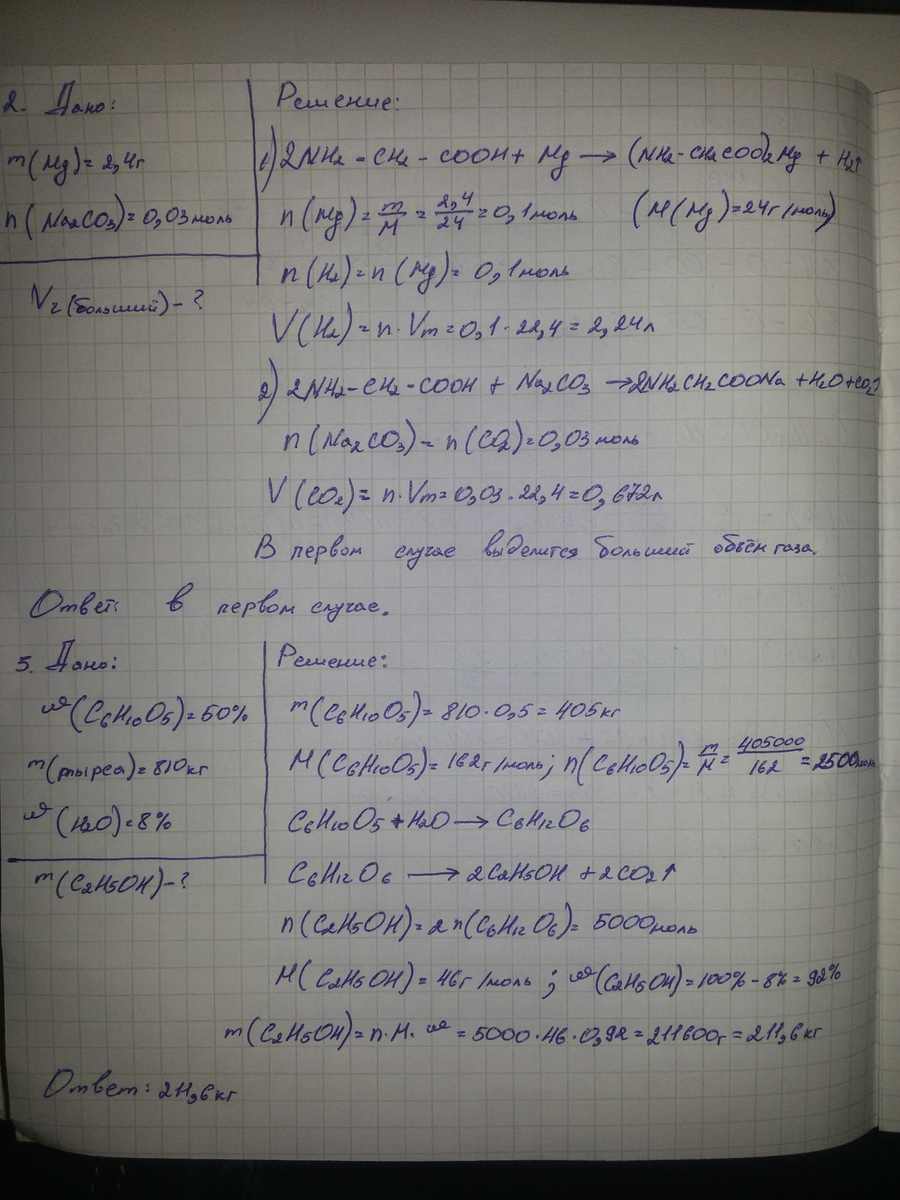 2. Дано:
m(Mg)=2,4г
n(Na2CO3)=0,03моль
V2(больший)-?
Решение:
1) 2NH2-CH2-COOH+Mg → (NH2-CH2COO)2Mg + H2↑
n(Mg)=m/M=2,4/24=0,1моль (M(Mg)=24г/моль)
n(H2)=n(Mg)=0,1моль
V(H2)=n·Vm=0,1·22,4=2,24л
2) 2NH2-CH2-COOH + Na2CO3 → 2NH2CH2COONa +H2O+CO2↑
n(Na2CO3)=n(CO2)=0,03моль
V(CO2)=n·Vm=0,03·22,4=0,672л
В первом случае выделится больший объём газа.
Ответ: в первом случае.
5. Дано:
ω(C6H10O5)=50%
m(тырса)=810кг
ω(H2O)=8%
m(C2H5OH)-?
Решение:
m(C6H10O5)=810·0,5=405кг
M(C6H10O5)=162г/моль; n(C6H10O5)=m/M=405000/162=2500моль
C6H10O5+H2O → C6H12O6
C6H12O6 → 2C2H5OH +2CO2↑
n(C2H5OH)=2n(C6H12O6)=5000моль
M(C2H5OH)=46г/моль; ω(C2H5OH)=100%-8%=92%
m(C2H5OH)=n·M·ω=5000·46·0,92=211600г=211,6кг
Ответ: 211,6кг